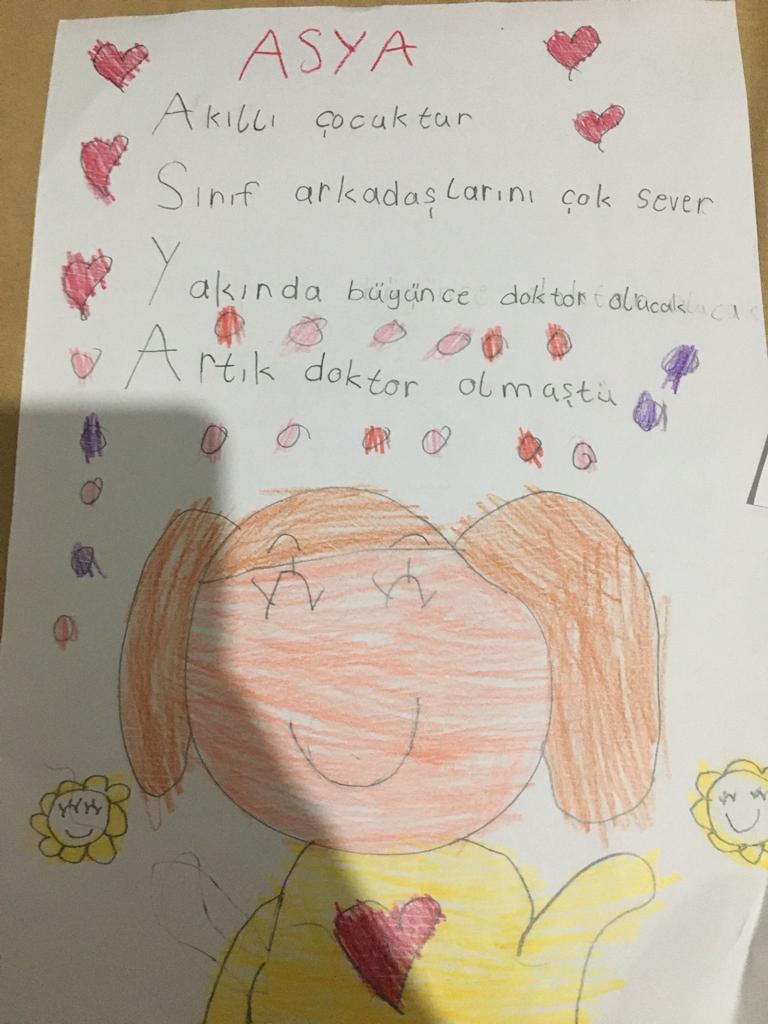 ASYA
Akıllı çocuktur
Sınıf arkadaşlarını çok sever
Yakında büyünce doktor olucak
Artık doktor olmaştu